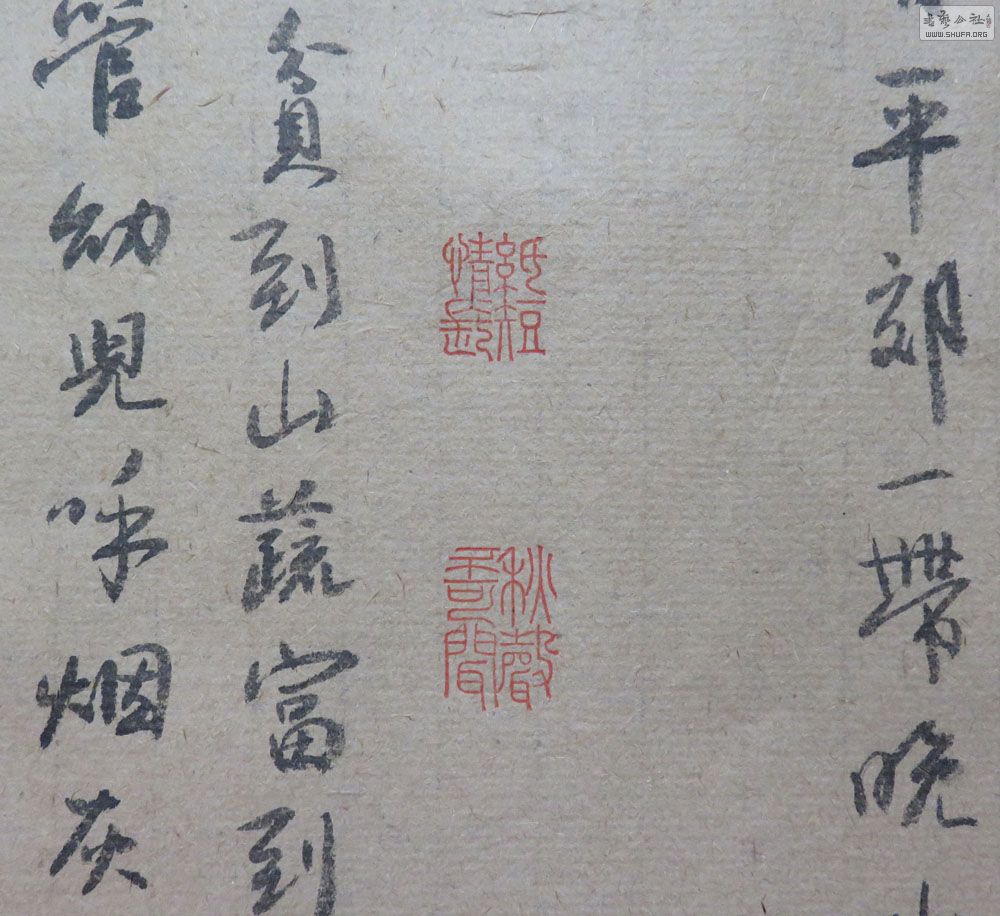 平郊一帶晚
紙短
情長
秋聲
貧到山蔬富到
管幼兒呼烟灰
书艺公社
WWW.SHUFA.ORG